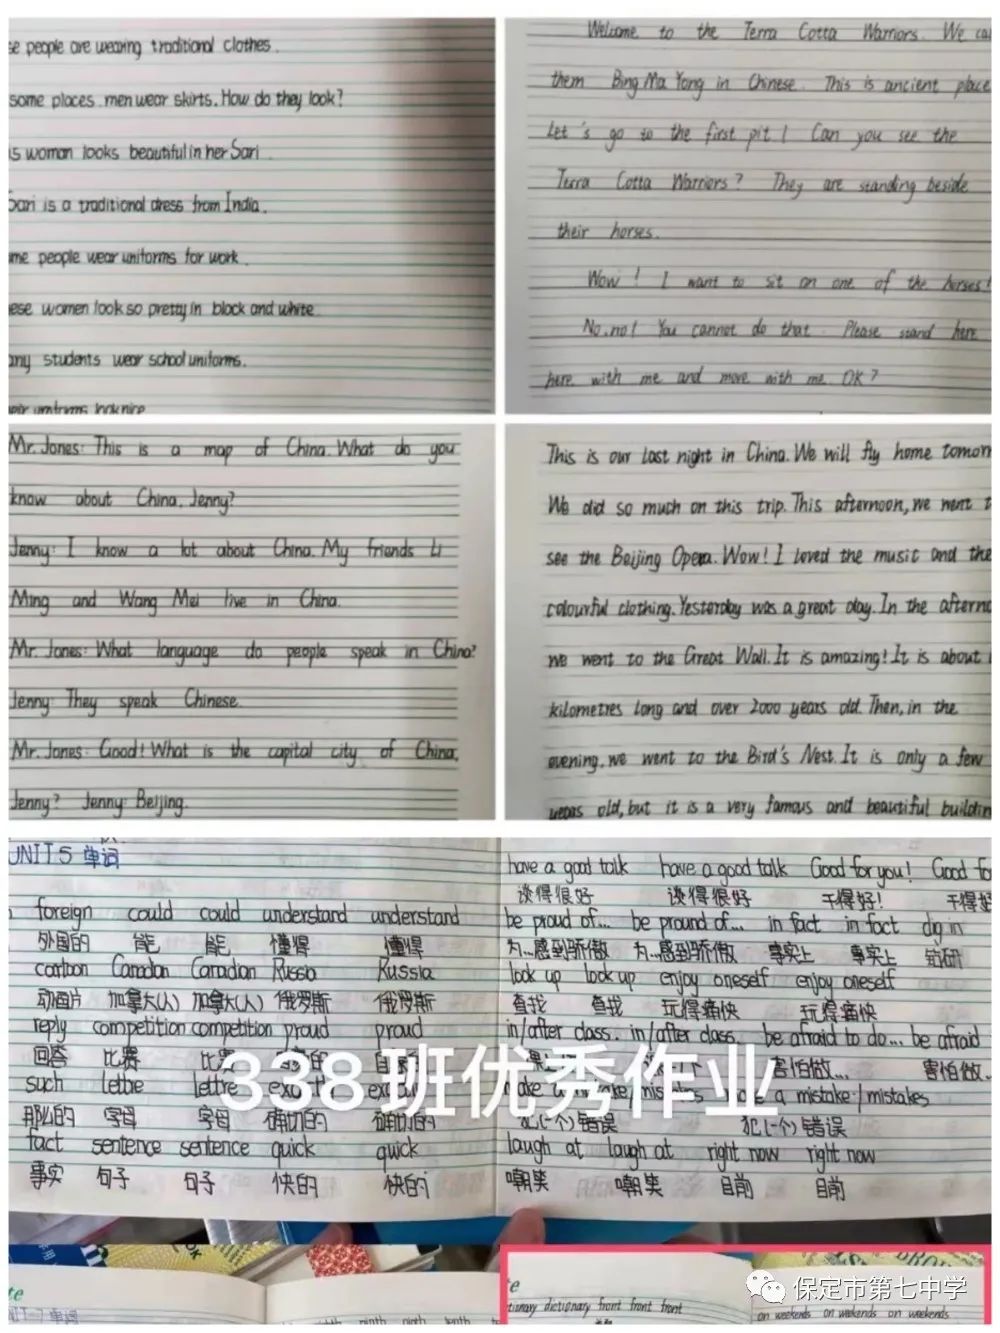 se people are wearing traditional clothes.
some places men wear skirts. How do they look?
is woman looks beautiful in her Sari.
Sari is a traditional dress from India.
me people wear uniforms for work.
ese women look so pretty in black and white.
any students wear school uniforms.
eir uniforms look nice
Welcome to the Terra Cotta Warriors. We ca
them Bing Ma Yong in Chinese. This is ancient place
Let's go to the first pit! Can you see the
Terra Cotta Warriors? They are standing beside
their horses.
Wow! I want to sit on one of the horses!
No, no! You cannot do that. Please stand here
here with me and move with me. OK?
Mr. Jones: This is a map of China. What do you
know about China, Jenny?
Jenny: I know a lot about China. My friends Li
Ming and Wang Mei live in China.
Mr. Jones: What language do people speak in China?
Jenny: They speak Chinese.
Mr. Jones: Good! What is the capital city of China,
Jenny? Jenny: Beijing.
This is our last night in China. We will fly home tomorr
We did so much on this trip. This afternoon, we went t
see the Beijing Opera. Wow! I loved the music and the
colourful clothing. Yesterday was a great day. In the afterno
we went to the Great Wall. It is amazing! It is about
kilometres long and over 2000 years old. Then, in the
evening, we went to the Bird's Nest. It is only a few
years old, but it is a very famous and beautiful building
UNIT 5 单词
foreign could could understand understand
外国的 能 能 懂得 懂得
cartoon Canadan Canadian Russia Russia
动画片 加拿大(人) 加拿大(人) 俄罗斯 俄罗斯
reply competition competition proud proud
回答 比赛 比赛
such lettre lettre
那么的 字母 字母 确切的 确切的
fact sentence sentence quick quick
事实 句子 句子 快的 快的
have a good talk have a good talk Good for you! Good fo
谈得很好 谈得很好 干得好! 干得好
be proud of... be pround of... in fact in fact dig in
为...感到骄傲 为...感到骄傲 事实上 事实上 钻研
look up look up enjoy oneself enjoy oneself
查找 查找 玩得痛快 玩得痛快
in/after class. in/after class. be afraid to do... be afraid
害怕做... 害怕做..
a mistake/mistakes
犯(一个)错误 犯(一个)错误
laugh at laugh at right now right now
嘲笑 嘲笑 目前 目前
338班优秀作业
单词
dictionary front front front
on weekends on weekends on weekends
保定市第七中学